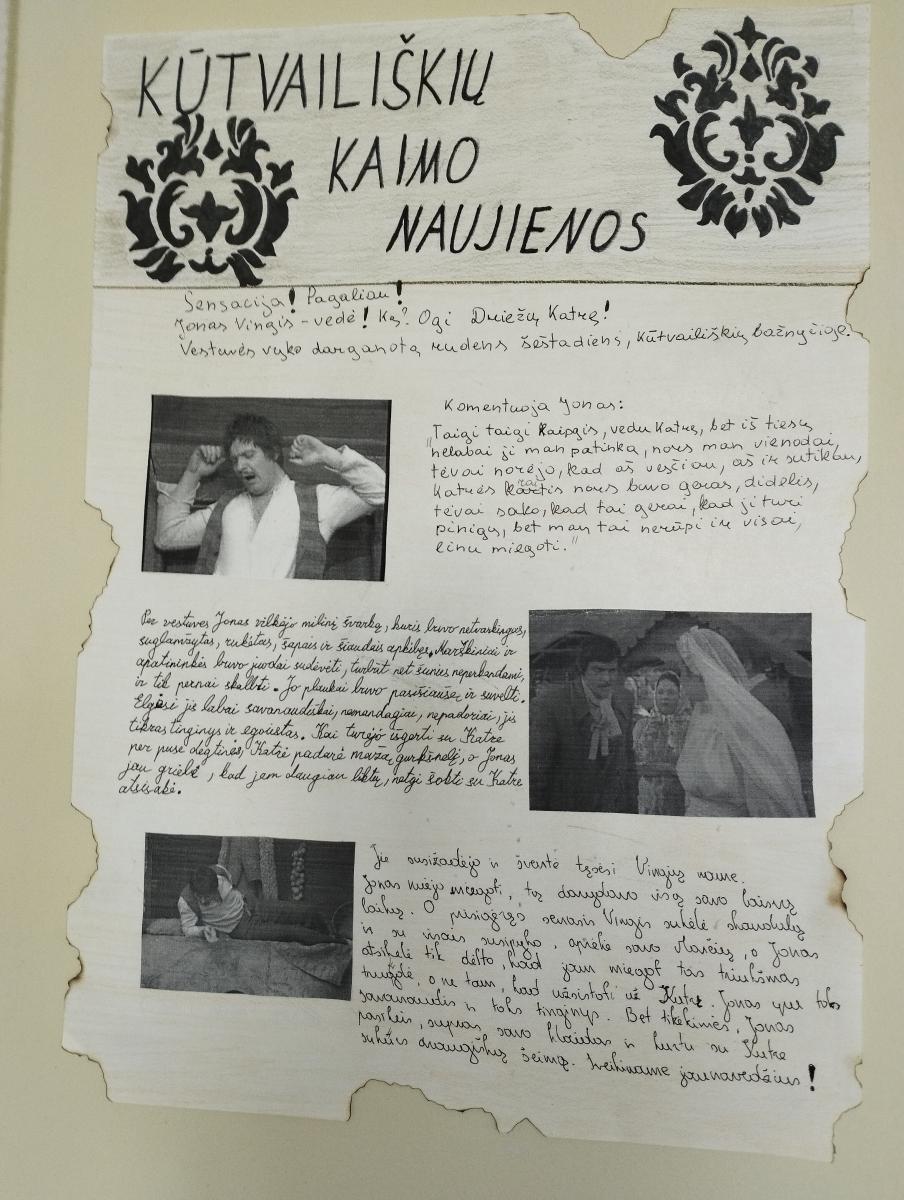 KŪTVAILIŠKIŲ
KAIMO
NAUJIENOS
Sensacija! Pagaliau!
Jonas Vingis - vedė! Ką? Ogi Driežų Katrę!
Vestuvės vyko darganotą rudens šeštadienį, Kūtvailiškių bažnyčioje!
Komentuoja Jonas:
"Taigi taigi kaipgis, vedu Katrę, bet iš tiesų
nelabai ji man patinka, nors man vienodai,
tėvai norėjo, kad aš vesčiau, aš ir sutikau,
Katrės kraitis nors buvo geras, didelis,
tėvai sako, kad tai gerai, kad ji turi
pinigų, bet man tai nerūpi ir visai,
einu miegoti."
Per vestuves Jonas vilkėjo milinį švarką, kuris buvo netvarkingas,
suglamžytas, ruketas, šapais ir šiaudais apkibęs. Marškiniai ir
apatininkės buvo juodai sudėvėti, turbūt net šunies neperkandami,
ir tik pernai skalbti. Jo plaukai buvo pasišiaušę ir suvelti.
Elgėsi jis labai savanaudiškai, nemandagiai, nepadoriai, jis
tikras tinginys ir egoistas. Kai turėjo išgerti su Katre
per pusę degtinės, Katrė padarė mažą gurkšnelį, o Jonas
jau griebė, kad jam daugiau liktų, netgi šokti su Katre
atsisakė.
Jie susižadėjo ir šventė tęsėsi Vingių name.
Jonas nuėjo miegoti, tą darydavo visą savo laisvą
laiką. O prisigėręs senasis Vingis sukėlė skandalą
ir su visais susipyko, aprėkė savo marčią, o Jonas
atsikėlė tik dėlto, kad jam miegot tas triukšmas
trugdė, o ne tam, kad užsistoti už Katrę. Jonas yra toks
savanaudis ir toks tinginys. Bet tikėkimės, Jonas
pasikeis, supras savo klaidas ir kartu su Katre
sukurs draugišką šeimą. Sveikiname jaunavedžius!